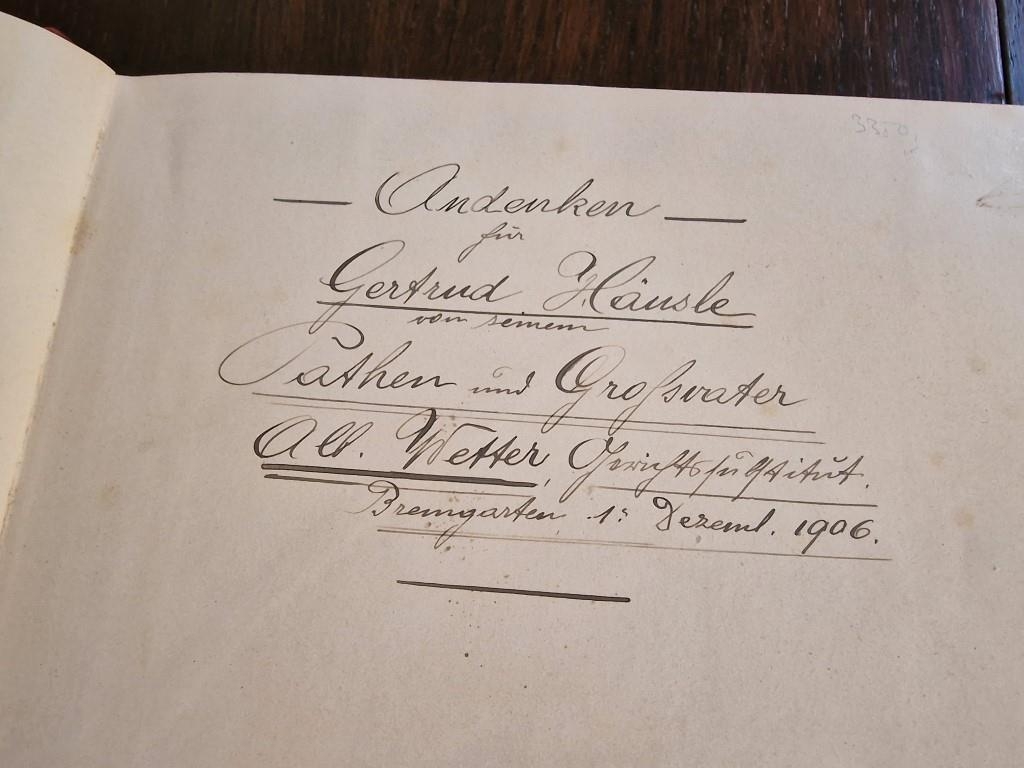 3350
— Andenken —
für
Gertrud Häusle
von seinem
Pathen und Großvater
Alb. Wetter, Gerichtssubstitut.
Bremgarten 1: Dezemb. 1906.